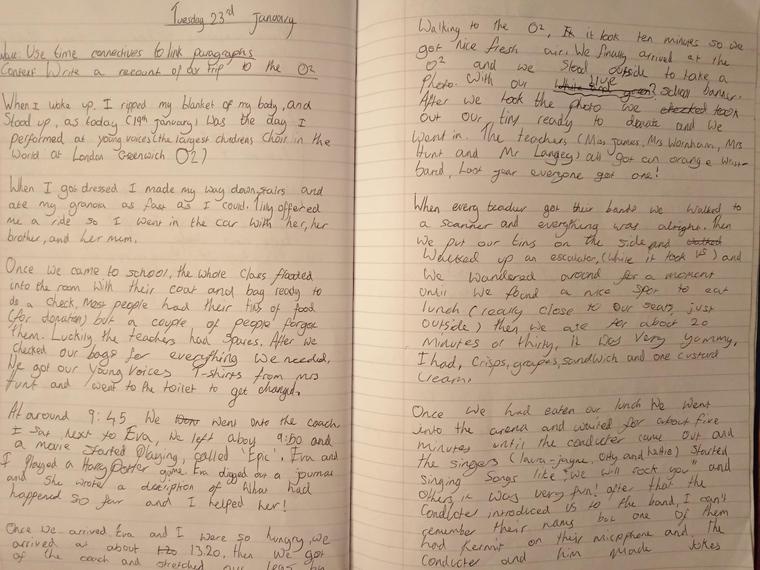 Tuesday 23rd January
Use time connectives to link paragraphs
Context Write a recount of our trip to the O2
When I woke up. I ripped my blanket of my body, and
Stood up, as today (19th january) was the day I
performed at young voices (the largest childrens choir in the
World at London Greenwich O2)
When I got dressed I made my way downstairs and
ate my granola as fast as I could. Tilly offered
me a ride so I went in the car with her, her
brother, and her mum.
Once we came to school, the whole class flooded
into the room with their coat and bag ready to
do a check, Most people had their tins of food
(for donation) but a couple of people forgot
them. Luckily the teachers had spares. After we
checked our bags for everything we needed,
We got our young voices T-shirts from mrs
Hunt and went to the toilet to get changed.
At around 9:45 We went onto the coach
I sat next to Eva, We left aboy 9:50 and
a movie started playing, called 'Epic'. Eva and
I played a Harry Potter game Eva digged out a journal
and She wrote a description of What had
happened so far and I helped her!
Once we arrived Eva and I were so hungry, we
arrived at about 13.20. then we got
of the coach and stretched our legs by
Walking to the O2, it took ten minutes so we
got nice fresh air. We finally arrived at the
O2 and we stood outside to take a
photo. With our school banner.
After we took the photo we took
out our tins ready to donate and we
Went in. The teachers (Miss James, Mrs Warnham, Mrs
Hunt and Mr Langey) all got an orange wrist-
band, last year everyone got one!
When every teacher got their bands we walked to
a scanner and everything was alright. Then
we put our tins on the side and
Walked up an escalator, (while it took us) and
We wandered around for a moment
Until we found a nice spot to eat
lunch (really close to our seats, just
outside) then we ate for about 20
minutes or thirty, it was very yummy,
I had, crisps, grapes, sandwich and one custard
cream.
Once we had eaten our lunch We went
into the arena and waited for about five
minutes until the conducter came out and
the singers (laura-jayne, Otty and hattie) started
singing Songs like "We will rock you" and
others it was very fun! after that the
Conducter introduced us to the band, I can't
remember their names but one of them
had Kermit on their microphone and the
Conducter and him made jokes